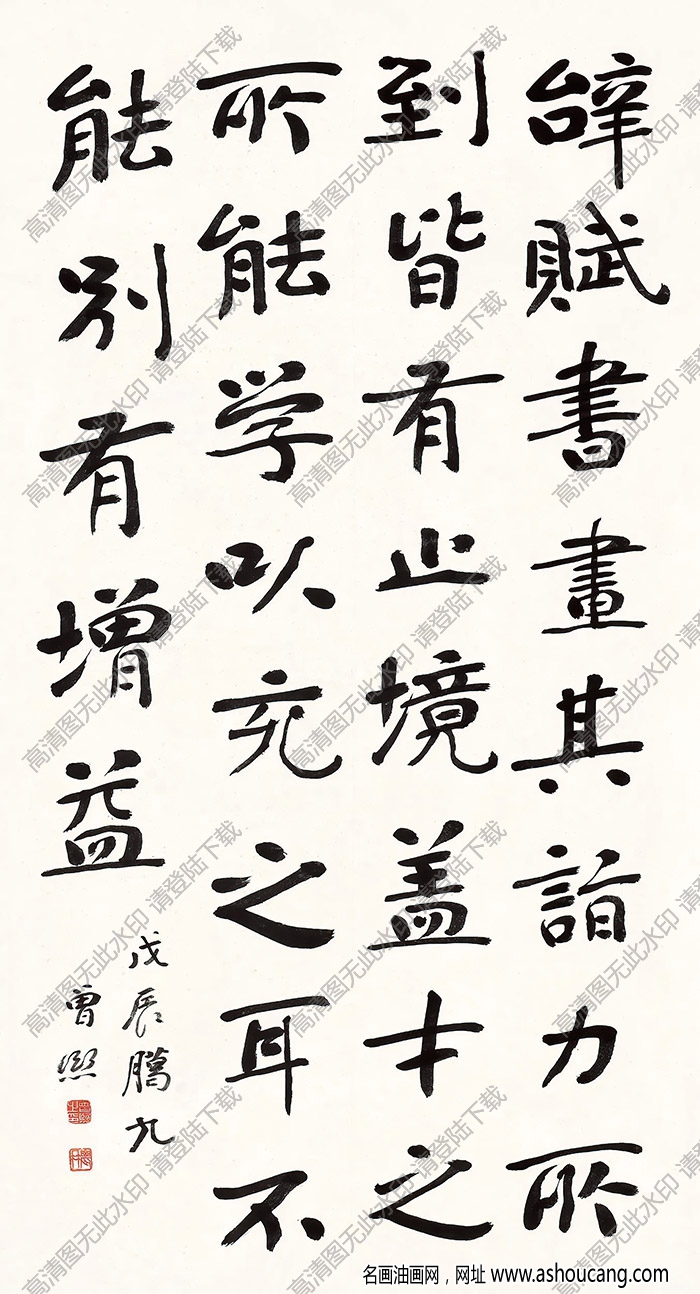 辝賦書畫其詣力所
到皆有止境盖才之
所能学以充之耳不
能别有增益
戊辰臈九
曾熙
高清图无此水印 请登陆下载
名画油画网，网址 www.ashoucang.com